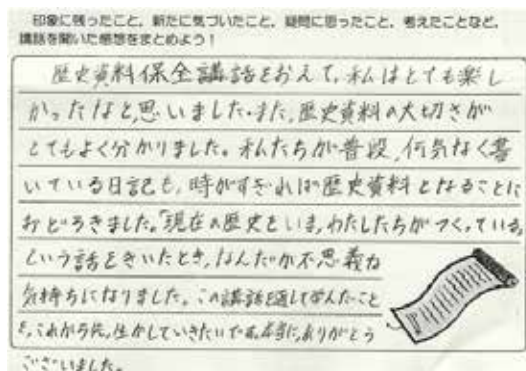 印象に残ったこと、新たに気づいたこと、疑問に思ったこと、考えたことなど、
講話を聞いた感想をまとめよう！
歴史資料保全講話をおえて、私はとても楽し
かったなと思いました。また、歴史資料の大切さが
とてもよく分かりました。私たちが普段、何気なく書
いている日記も、時がすぎれば歴史資料となることに
おどろきました。「現在の歴史をいま、わたしたちがつくっている」
という話をきいたとき、なんだか不思義な
気持ちになりました。この講話を通して学んだこと
を、これから先、生かしていきたいです。本当に、ありがとう
ございました。